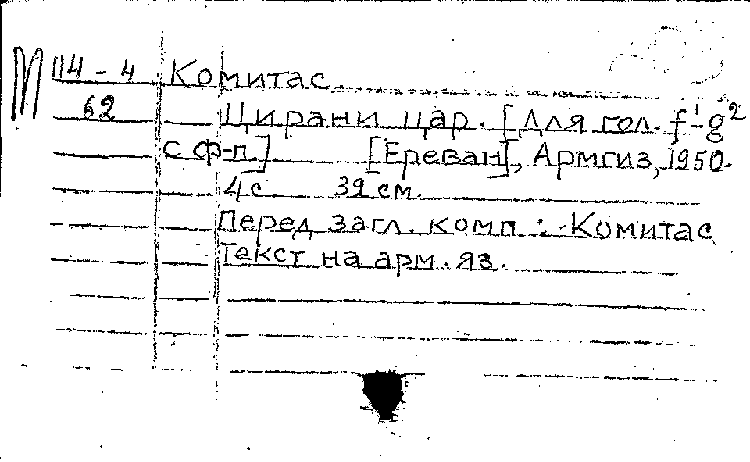 М 114-4 Комитас
62 Цирани цар. [Для гол. f¹-g²
с ф-п.] [Ереван], Армгиз, 1950.
4с 39 см.
Перед загл. комп.: Комитас
Текст на арм. яз.